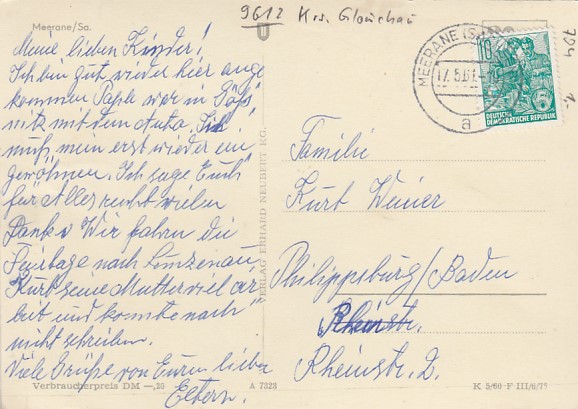 Meerane/Sa.
9612 Krs. Glauchau
704
1.-
Meine lieben Kinder!
Ich bin gut wieder hier ange
kommen Papa war in Göß,
nitz mit dem Auto. Ich
muß mein erst wieder ein
gewöhnen. Ich sage Euch
für Alles recht vielen
Dank. Wir fahren die
Feiertage nach Lunzenau
Kurt seine Mutter viel ar
beit und konnte noch
nicht schreiben.
Viele Grüße von Euren lieben
Eltern.
MEERANE (SACHS)
17.5.61
a
10
5
DEUTSCHE
DEMOKRATISCHE REPUBLIK
Familie
Kurt
Philippsburg/Baden
Rheinstr.
Rheinstr. 2.
VERLAG ERHARD NEUBERT KG.
Verbraucherpreis DM —,20 A 7328
K 5/60 F III/6/75